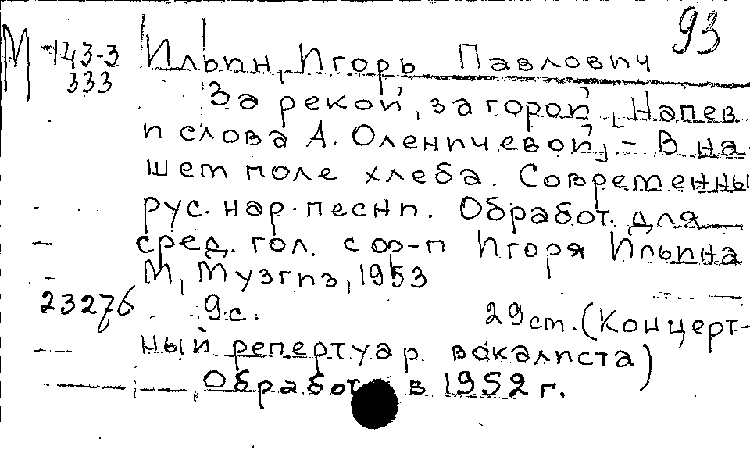 93
М 143-3 Ильин, Игорь Павлович
333
За рекой, за горой, Напев
и слова А. Оленичевой, - В на-
шем поле хлеба. Современны
рус. нар. песни. Обработ. для
сред. гол. с ф-п Игоря Ильина
М, Музгиз, 1953
23276 9с. 29см. (Концерт-
ный репертуар вокалиста)
Обработ. в 1952 г.